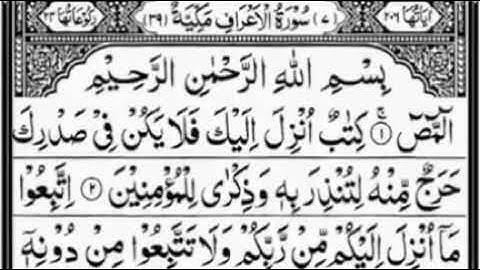 اٰیَاتُهَا ٢٠٦ (٧) سُوْرَةُ الْاَعْرَافِ مَكِّیَّةٌ (٣٩) رُكُوْعَاتُهَا ٢٤
بِسْمِ اللّٰهِ الرَّحْمٰنِ الرَّحِیْمِ
الٓمّٓصٓ ۚ﴿١﴾ كِتٰبٌ اُنْزِلَ اِلَیْكَ فَلَا یَكُنْ فِیْ صَدْرِكَ
حَرَجٌ مِّنْهُ لِتُنْذِرَ بِهٖ وَذِكْرٰی لِلْمُؤْمِنِیْنَ ﴿٢﴾ اِتَّبِعُوْا
مَاۤ اُنْزِلَ اِلَیْكُمْ مِّنْ رَّبِّكُمْ وَلَا تَتَّبِعُوْا مِنْ دُوْنِهٖۤ